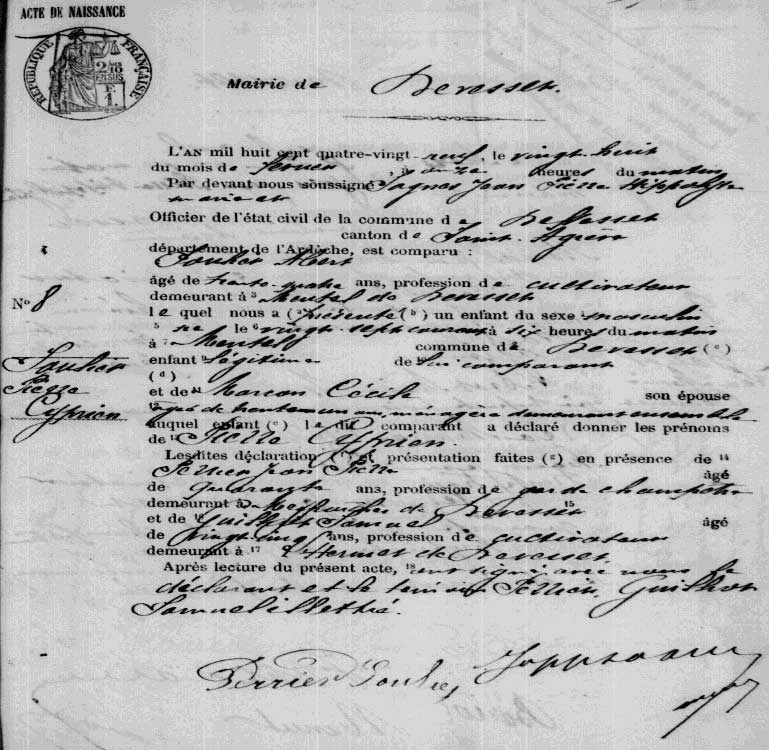 ACTE DE NAISSANCE
RÉPUBLIQUE FRANÇAISE
2/10 EN SUS
F. 1.
Mairie de Devesset.
L'AN mil huit cent quatre-vingt neuf, le vingt huit
du mois de , à onze heures du matin
Par devant nous soussigné Jean Pierre Hippolyte
Officier de l'état civil de la commune de Devesset
canton de Saint-Agrève
département de l'Ardèche, est comparu :
Soulier Albert
âgé de trente quatre ans, profession de cultivateur
demeurant à ³ de Devesset
le quel nous a (ᵃ) présenté (ᵇ) un enfant du sexe ⁴ masculin
⁵ né le ⁶ vingt sept courant à six heures du matin
à ⁷ commune de Devesset (ᶜ)
enfant ⁹ légitime de ¹⁰ lui comparant
(ᵈ)
et de ¹¹ Marcon Cécile son épouse
âgée de trente un an, ménagère demeurant ensemble
auquel enfant (ᵉ) le dit comparant a déclaré donner les prénoms
de ¹³ Pierre Cyprien.
Lesdites déclaration (ᶠ) et présentation faites (ᵍ) en présence de ¹⁴
Perrier Jean Pierre âgé
de quarante ans, profession de garde champêtre
demeurant à de Devesset ¹⁵
et de ¹⁶ Guilhot Samuel âgé
de vingt cinq ans, profession de cultivateur
demeurant à ¹⁷ de Devesset
Après lecture du présent acte, ¹⁸ ont signé avec nous le
déclarant et le témoin Perrier, Guilhot
Samuel illettré.
Nº 8
Soulier
Pierre
Cyprien
Perrier Soulier